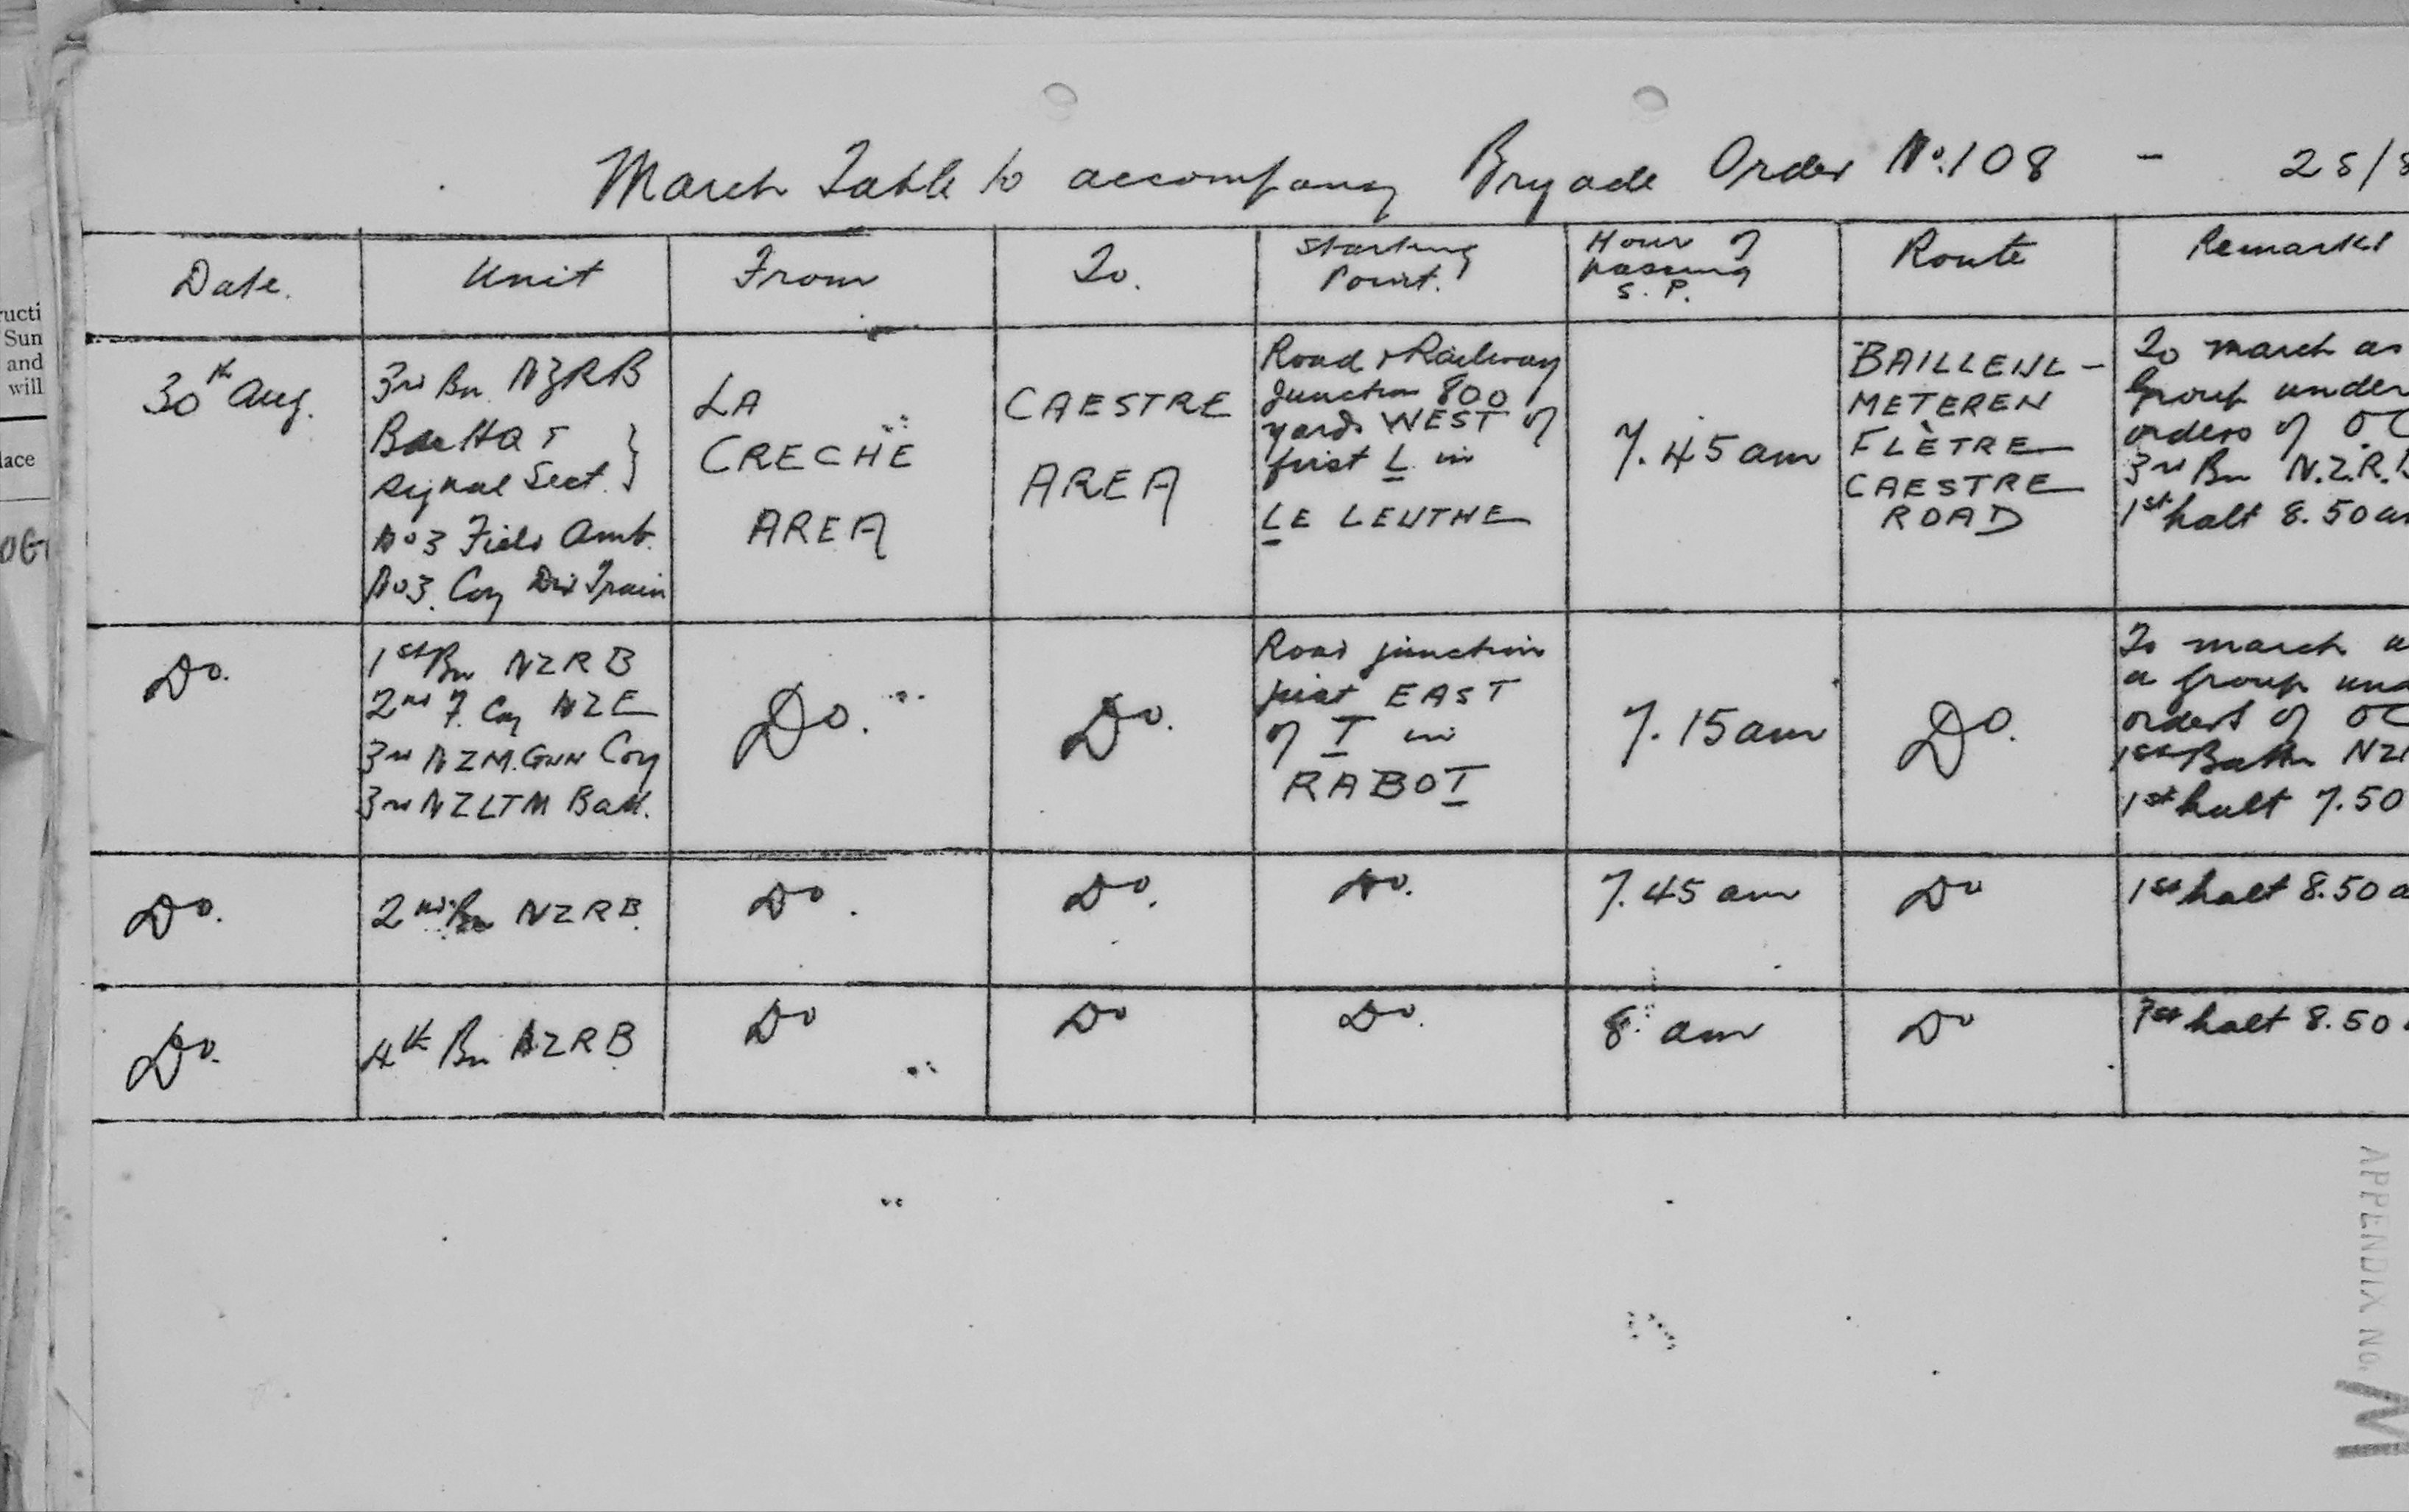 March Table to accompany Brigade Order No. 108 - 28/8
Date.
Unit
From
To.
Starting
Point.
Hour of
passing
S. P.
Route
Remarks
30th Aug.
3rd Bn NZRB
Bde HQ &
Signal Sect.
No 3 Field Amb.
No 3. Coy Div Train
LA
CRECHE
AREA
CAESTRE
AREA
Road & Railway
Junction 800
yards WEST of
first L in
LE LEUTHE
7.45 am
BAILLEUL -
METEREN
FLÈTRE
CAESTRE
ROAD
To march as
Group under
orders of OC
3rd Bn N.Z.R.B
1st halt 8.50 am
Do.
1st Bn NZRB
2nd F. Coy NZE
3rd NZ M. GUN Coy
3rd NZ LTM Batt.
Do.
Do.
Road junction
just EAST
of T in
RABOT
7.15 am
Do.
To march
a Group und
orders of OC
1st Battn NZ
1st halt 7.50
Do.
2nd Bn NZRB
Do.
Do.
Do.
7.45 am
Do
1st halt 8.50 a
Do.
4th Bn NZRB
Do
Do
Do.
8 am
Do
1st halt 8.50
APPENDIX NO.
ructi
Sun
and
will
lace